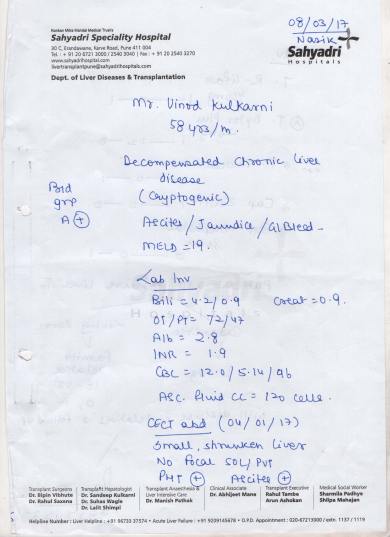 Konkan Mitra Mandal Medical Trust's
Sahyadri Speciality Hospital
30 C, Erandavane, Karve Road, Pune 411 004
Tel. : + 91 20 6721 3000 / 2540 3040 | Fax : + 91 20 2540 3270
www.sahyadrihospital.com
livertransplantpune@sahyadrihospitals.com
Dept. of Liver Diseases & Transplantation
08/03/17
Nasik
Sahyadri
Hospitals
Mr. Vinod Kulkarni
58 yrs/m.
Decompensated Chronic liver
disease
(Cryptogenic)
Bld
grp
A (+)
Ascites / Jaundice / GI Bleed -
MELD = 19.
Lab Inv
Bili = 4.2/0.9 Creat = 0.9.
OT/PT = 72/47
Alb = 2.8
INR = 1.9
CBC = 12.0/5.14/96
Asc. fluid CC = 120 cells.
CECT abd (04/01/17)
Small, shrunken liver
No focal SOL/PVT
PHT (+) Ascites (+)
Transplant Surgeons
Dr. Bipin Vibhute
Dr. Rahul Saxena
Transplant Hepatologist
Dr. Sandeep Kulkarni
Dr. Suhas Wagle
Dr. Lalit Shimpi
Transplant Anaesthesia &
Liver Intensive Care
Dr. Manish Pathak
Clinical Associate
Dr. Abhijeet Mane
Transplant Executive
Rahul Tambe
Arun Ashokan
Medical Social Worker
Sharmila Padhye
Shilpa Mahajan
Helpline Number : Liver Helpline : +91 96733 37574 • Acute Liver Failure : +91 9209145678 • O.P.D. Appointment : 020-67213000 / extn: 1137 / 1119